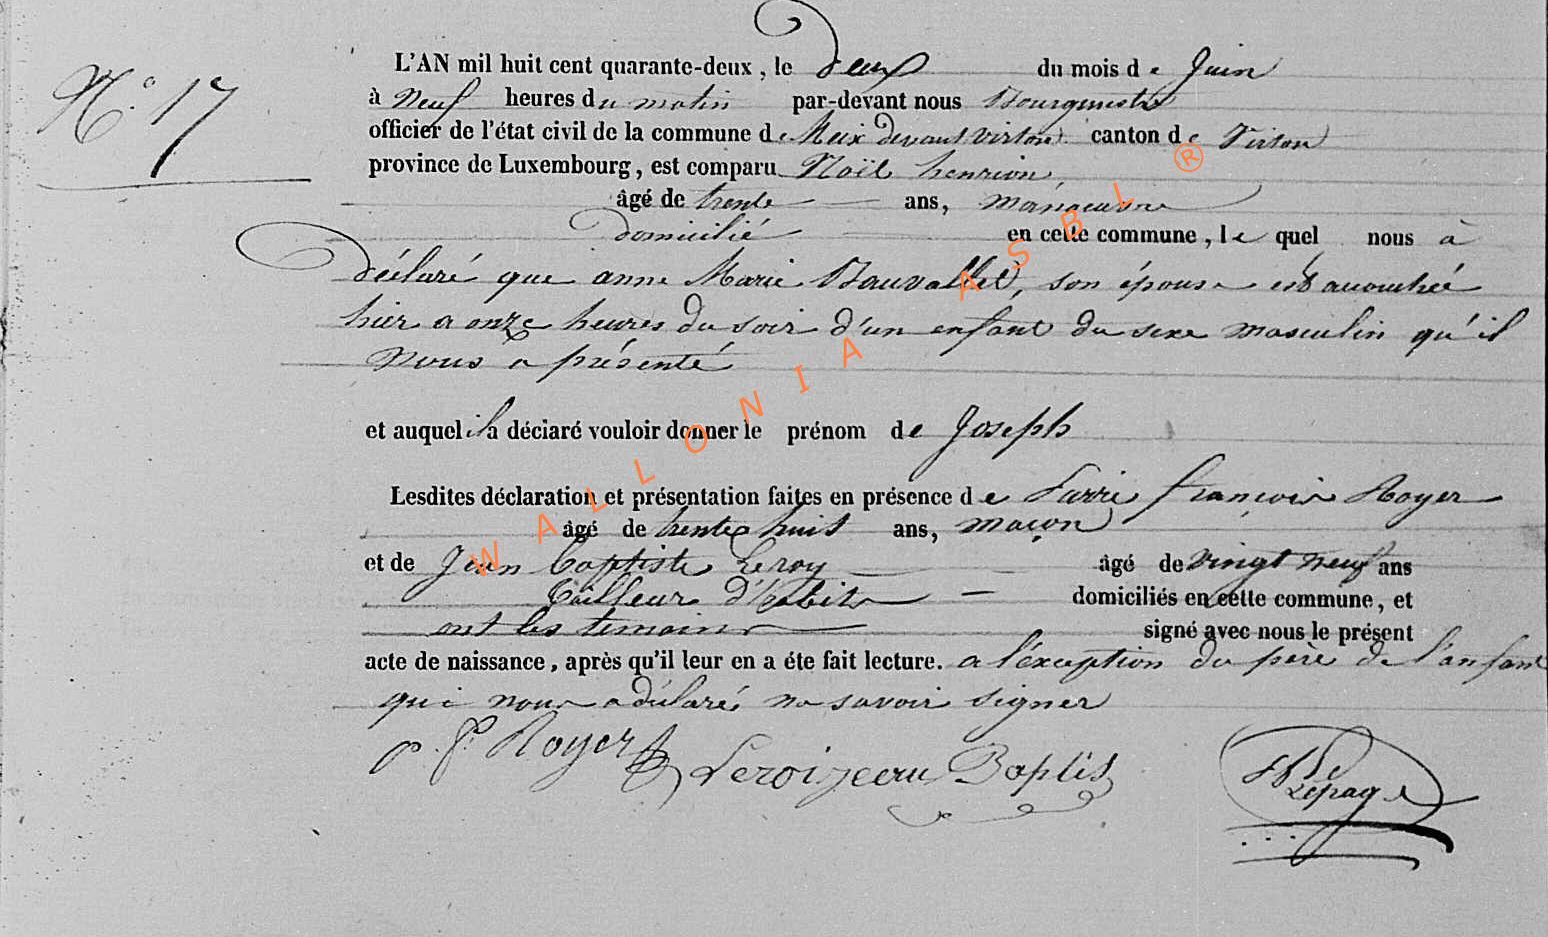 N.º 17
L'AN mil huit cent quarante-deux, le deux du mois de Juin
à Neuf heures du matin par-devant nous Bourgmestre
officier de l'état civil de la commune de Meix devant virton canton de Virton
province de Luxembourg, est comparu Noël henrion,
âgé de trente ans, manoeuvre
domicilié en cette commune, le quel nous à
déclaré que anne Marie Bauvallet, son épouse est accouchée
hier a onze heures du soir d'un enfant du sexe masculin qu'il
nous a présenté
et auquel il a déclaré vouloir donner le prénom de Joseph
Lesdites déclaration et présentation faites en présence de françois Royer
âgé de trente huit ans, maçon
et de Jean Baptiste Leroy âgé de vingt neuf ans
tailleur d'habits domiciliés en cette commune, et
ont les temoins signé avec nous le présent
acte de naissance, après qu'il leur en a éte fait lecture. a l'éxception du père de l'enfant
qui nous a déclaré ne savoir signer
p. f. Royer Leroi jean Baptis Lepage
WALLONIA ASBL ®